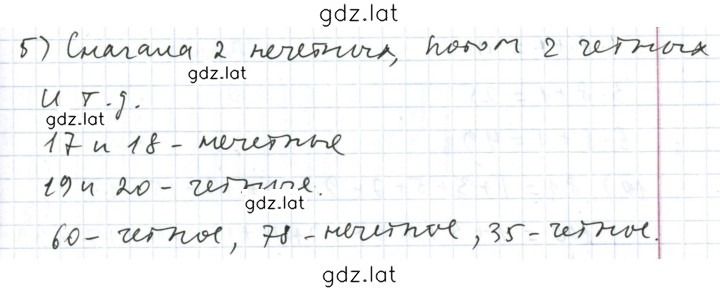 gdz.lat
5) Сначала 2 нечетных, потом 2 четных
gdz.lat
и т.д.
gdz.lat
17 и 18 - нечетные
19 и 20 - четные.
gdz.lat
60 - четное, 78 - нечетное, 35 - четное.
gdz.lat